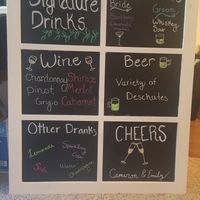 Signature
Drinks
Bride
Blackberry
Lemonade
Groom
Whiskey
Sour
Wine
Chardonnay Shiraz
Pinot Merlot
Grigio Cabernet
Beer
Variety of
Deschutes
Other Drinks
Lemonade
Sparkling
Water
CHEERS
Cameron & Emily!